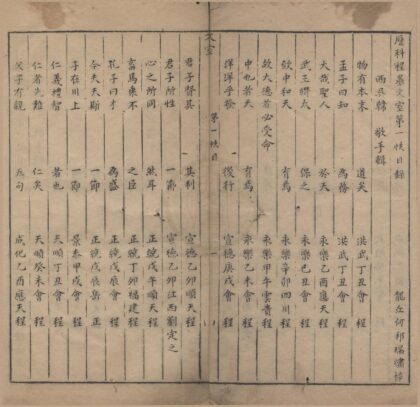 歷科程墨文室第一帙目錄
韓 敬手輯 龍丘何
物有本末 道矣 洪武丁丑會 程
孟子曰知 為務 洪武丁丑會 程
大哉聖人 於天 永樂乙酉應天程
武王纘太 保之 永樂己丑會 程
致中和天 有焉 永樂辛卯四川 程
故大德者必受命 永樂甲午雲貴程
中也者天 有焉 永樂乙未會 程
洋洋乎發 後行 宣德庚戌會 程
文室 第一帙目 一
君子賢其 其利 宣德乙卯順天程
君子所性 一節 宣德乙卯江西劉定之
心之所同 然耳 正統戊午順天程
畜馬乘不 之臣 正統丁卯福建程
孔子曰才 為盛 正統戊辰會 程
今夫天斯 一節 正統戊辰岳 正
子在川上 一節 景泰甲戌會 程
仁義禮智 者也 天順丁丑會 程
仁者先難 仁矣 天順癸未會 程
父子有親 五句 成化乙酉應天程